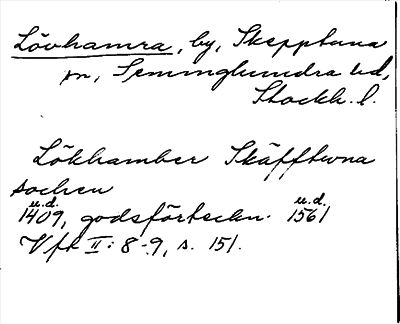 Lövhamra, by, Skepptuna
sn, Seminghundra hd,
Stockh. l.
Lökhamber Skäfftuna
sochen
u.d. u.d.
1409, godsförteckn. 1561
Vfk II: 8-9, s. 151.